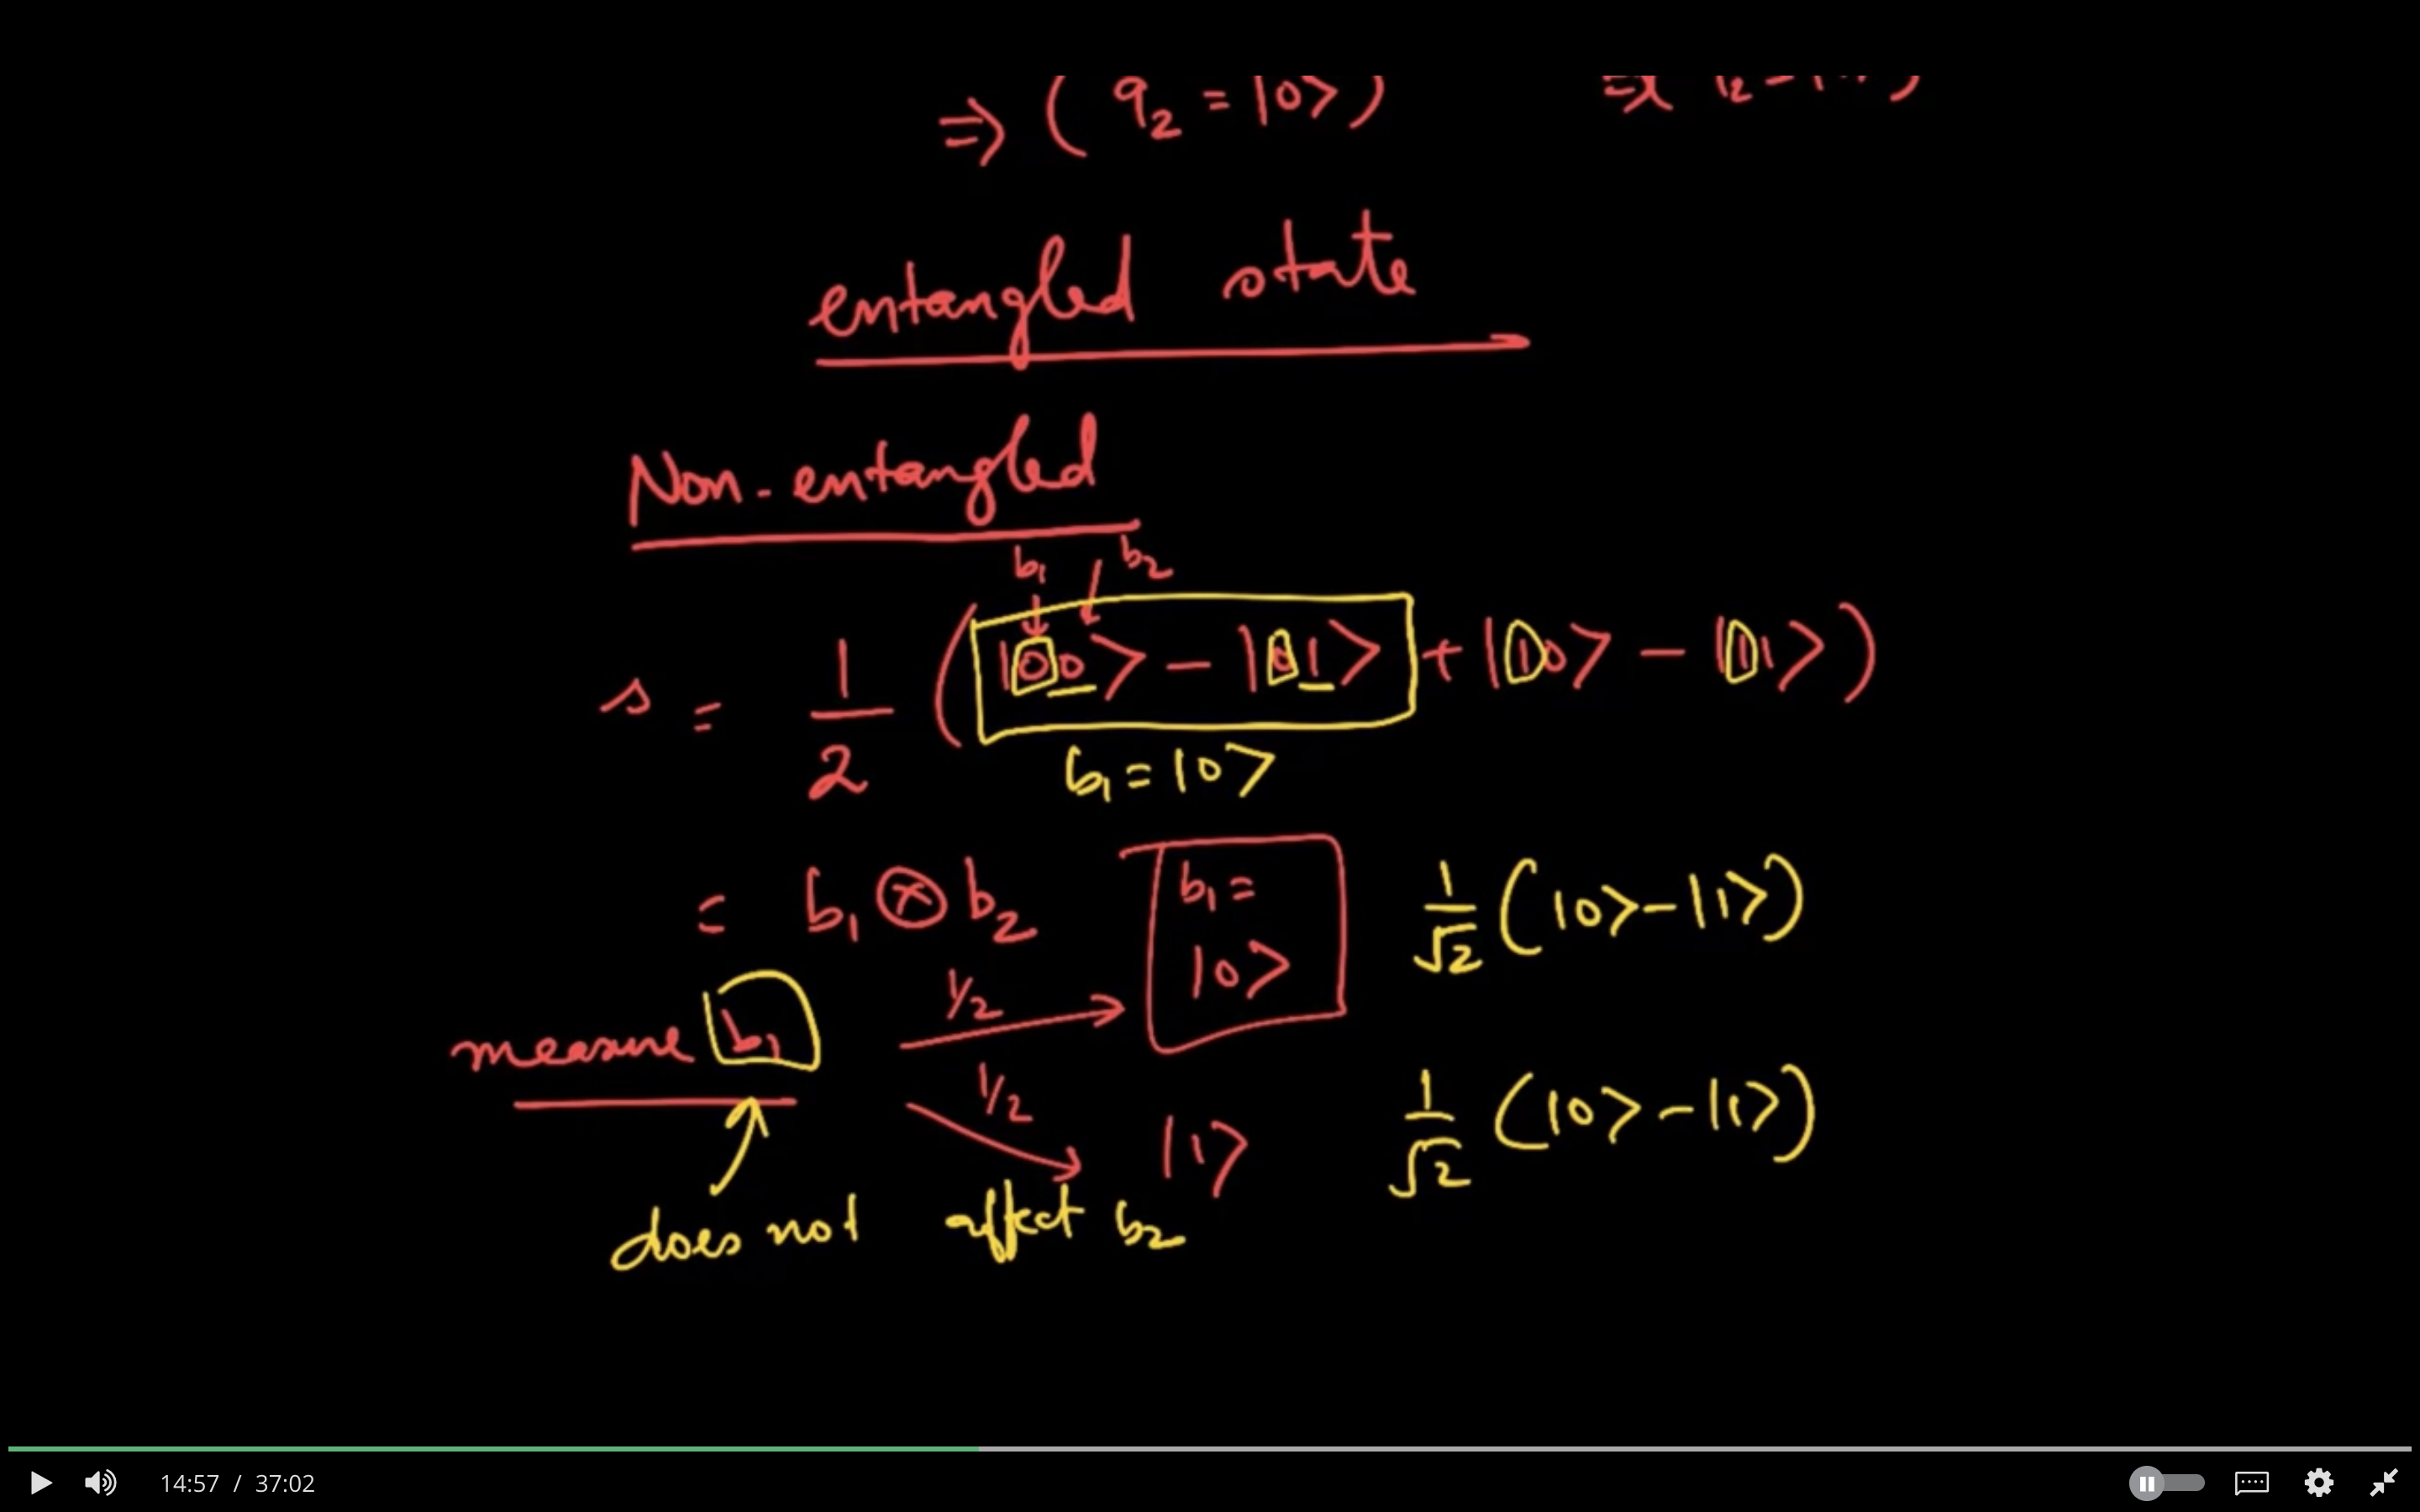 => ( q2 = |0> )
entangled state
Non-entangled
b1 b2
s = 1/2 ( |00> - |01> + |10> - |11> )
b1 = |0>
= b1 ⊗ b2
b1 = |0>
1/√2 ( |0> - |1> )
measure b1
1/2
1/2
|1>
1/√2 ( |0> - |1> )
does not affect b2
14:57 / 37:02